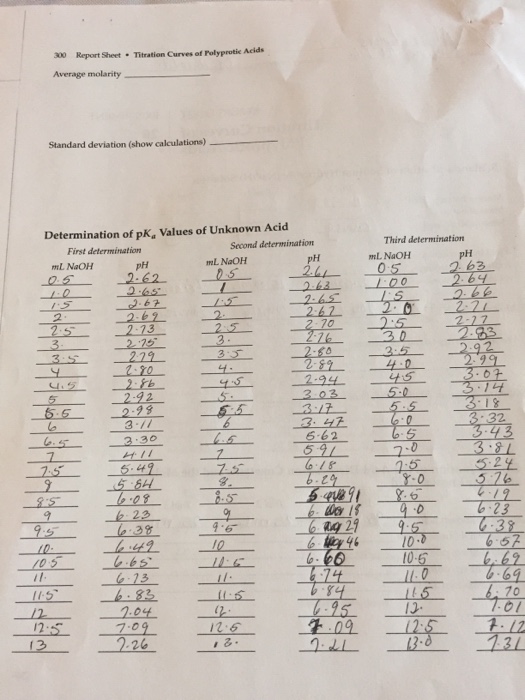 300 Report Sheet • Titration Curves of Polyprotic Acids
Average molarity
Standard deviation (show calculations)
Determination of pKa Values of Unknown Acid
First determination Second determination Third determination
mL NaOH pH mL NaOH pH mL NaOH pH
0.5 2.62 0.5 2.61 0.5 2.63
1.0 2.65 1 2.63 1.00 2.64
1.5 2.67 1.5 2.65 1.5 2.66
2 2.69 2 2.67 2.0 2.71
2.5 2.73 2.5 2.70 2.5 2.77
3. 2.75 3. 2.76 3.0 2.83
3.5 2.79 3.5 2.80 3.5 2.92
4 2.80 4. 2.89 4.0 2.99
4.5 2.86 4.5 2.94 4.5 3.07
5 2.92 5. 3.03 5.0 3.14
5.5 2.98 5.5 3.17 5.5 3.18
6 3.11 6 3.47 6.0 3.32
6.5 3.30 6.5 5.62 6.5 3.43
7 4.11 7 5.91 7.0 3.81
7.5 5.49 7.5 6.18 7.5 5.24
8. 6.29 8.0 5.76
8.5 6.08 8.5 8.5 6.19
9 6.23 9 6. 18 9.0 6.23
9.5 6.38 9.5 6. 29 9.5 6.38
10. 6.49 10 6. 46 10.0 6.57
10.5 6.65 10.5 6.60 10.5 6.69
11. 6.73 11. 6.74 11.0 6.69
11.5 6.83 11.5 6.84 11.5 6.70
12 7.04 12. 6.95 12. 7.01
12.5 7.09 12.5 7.09 12.5 7.12
13 7.26 13. 7.21 13.0 7.31